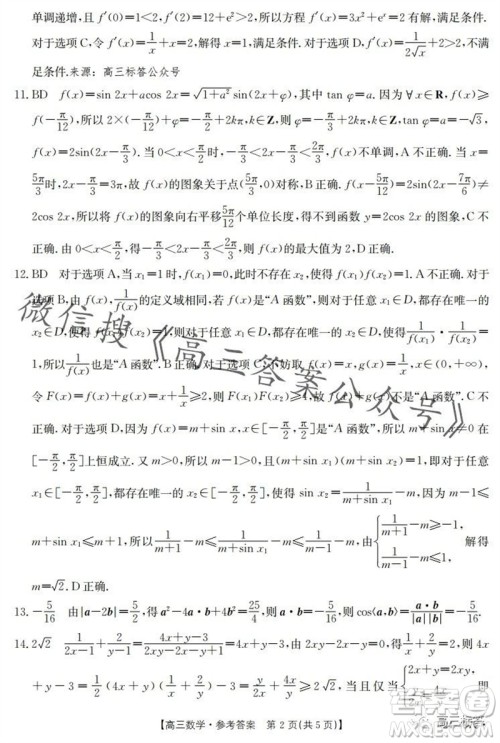 单调递增,且 f′(0)=1<2, f′(1)=2+e>2,所以方程 f′(x)=2 有解,满足条件.
对于选项 C,令 f′(x)=1/x+1=2,解得 x=1,满足条件. 对于选项 D, f′(x)=1/(2√x)+2>2,不满
足条件.来源:高三标答公众号
11. BD f(x)=sin 2x+acos 2x=√(1+a²) sin(2x+φ),其中 tan φ=a. 因为∀x∈R, f(x)≥
f(-π/12),所以 2×(-π/12)+φ=-π/2+2kπ,k∈Z,则 φ=-π/3+2kπ,k∈Z,故 a=-√3,
f(x)=2sin(2x-π/3). 当 0<x<π/2时,-π/3<2x-π/3<2π/3,故 f(x)不单调,A 不正确. 当 x=
5π/3时,2x-π/3=3π,故 f(x)的图象关于点(5π/3,0)对称,B 正确. f(x-5π/12)=2sin(2x-7π/6)≠
2cos 2x,所以将 f(x)的图象向右平移5π/12个单位长度,得不到函数 y=2cos 2x 的图象,C 不
正确. 由 0<x<π/2,得-π/3<2x-π/3<2π/3,所以 f(x)的最大值为 2,D 正确.
12. BD 对于选项 A,当 f(x₁)=1 时,不存在 x₂∈D,使得 f(x₁)f(x₂)=1. A 不正确. 对于
选项 B,由 f(x),1/f(x)的定义域相同,若 f(x)是“A 函数”,则对于任意 x₁∈D,都存在唯一的
x₂∈D,使得 f(x₁)f(x₂)=1,则对于任意 x₁∈D,都存在唯一的 x₂∈D,使得1/f(x₁)·1/f(x₂)=
1,所以1/f(x)也是“A 函数”,B 正确. 对于选项 C,不妨取 f(x)=x,g(x)=1/x,x∈(0,+∞),
令 F(x)=f(x)+g(x)=x+1/x≥2,则 F(x₁)F(x₂)≥2>1,故 f(x)+g(x)不是“A 函数”,C
不正确. 对于选项 D,因为 f(x)=m+sin x 是“A 函数”,所以 m+sin x≠0 在
[-π/2,π/2]上恒成立. 又 m>0,所以 m-1>0,且(m+sin x₁)(m+sin x₂)=1,即对于任意
x₁∈[-π/2,π/2],都存在唯一的 x₂∈[-π/2,π/2],使得 sin x₂=1/(m+sin x₁)-m,因为 m-1≤
m+sin x₁≤m+1,所以1/(m+1)-m≤1/(m+sin x₁)-m≤1/(m-1)-m,由{1/(m+1)-m≥-1, 1/(m-1)-m≤1, 解得
m=√2. D 正确.
13. -5/16 由|a-2b|=5/2,得 a²-4a·b+4b²=25/4,则 a·b=-5/16,则 cos⟨a,b⟩=a·b/(|a||b|)=-5/16.
14. 2√2 1/(2x)+1/y+2/(x-y)=(4x+y-3)/(2xy-2x-y) 
【高三数学·参考答案 第 2 页(共 5 页)】
微信搜《高三答案公众号》